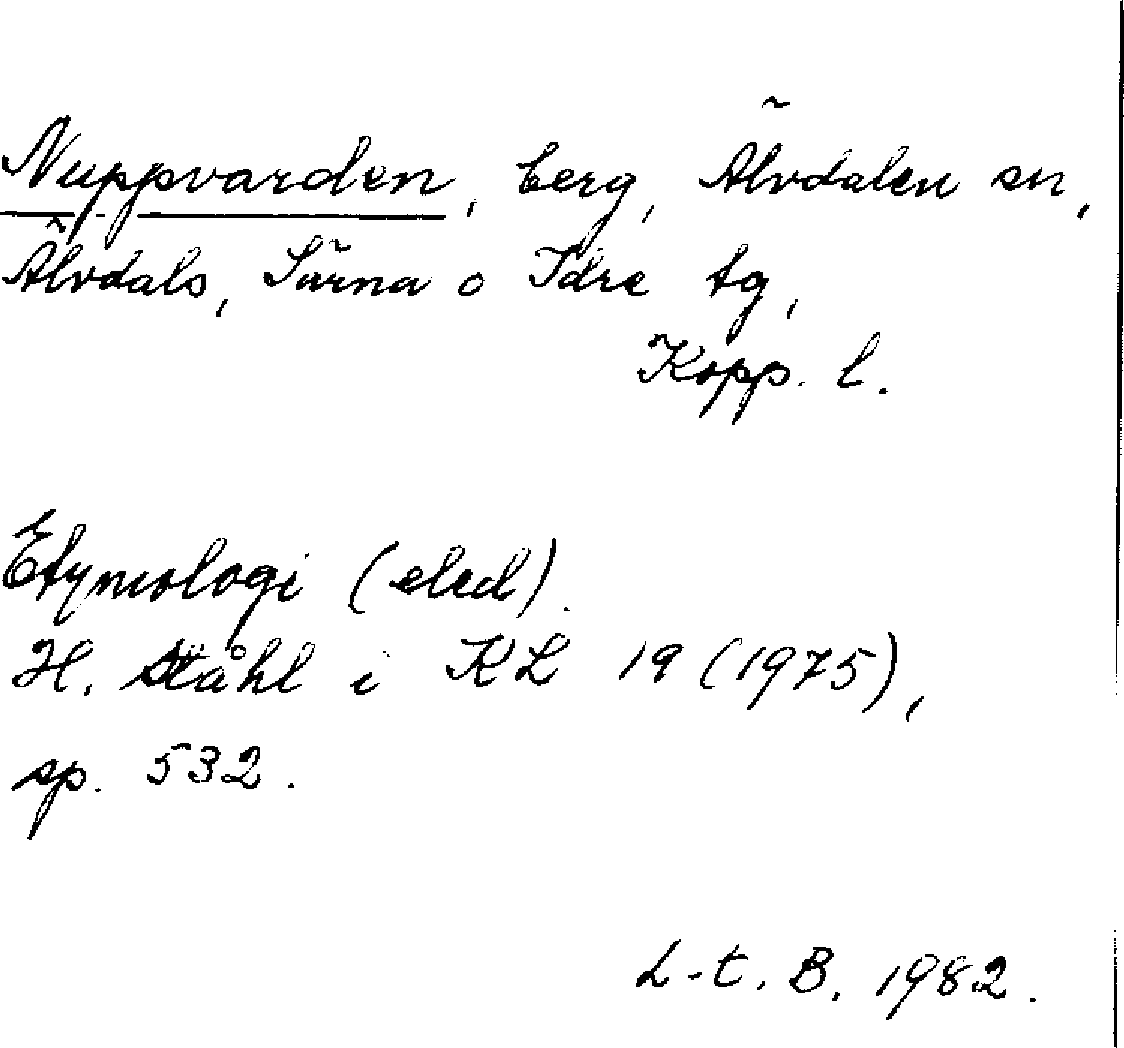 Nuppvarden, berg, Älvdalen sn,
Älvdals, Särna o Idre tg,
Kopp. l.
Etymologi (eled).
H. Ståhl i KL 19 (1975),
sp. 532.
L-t. B. 1982.